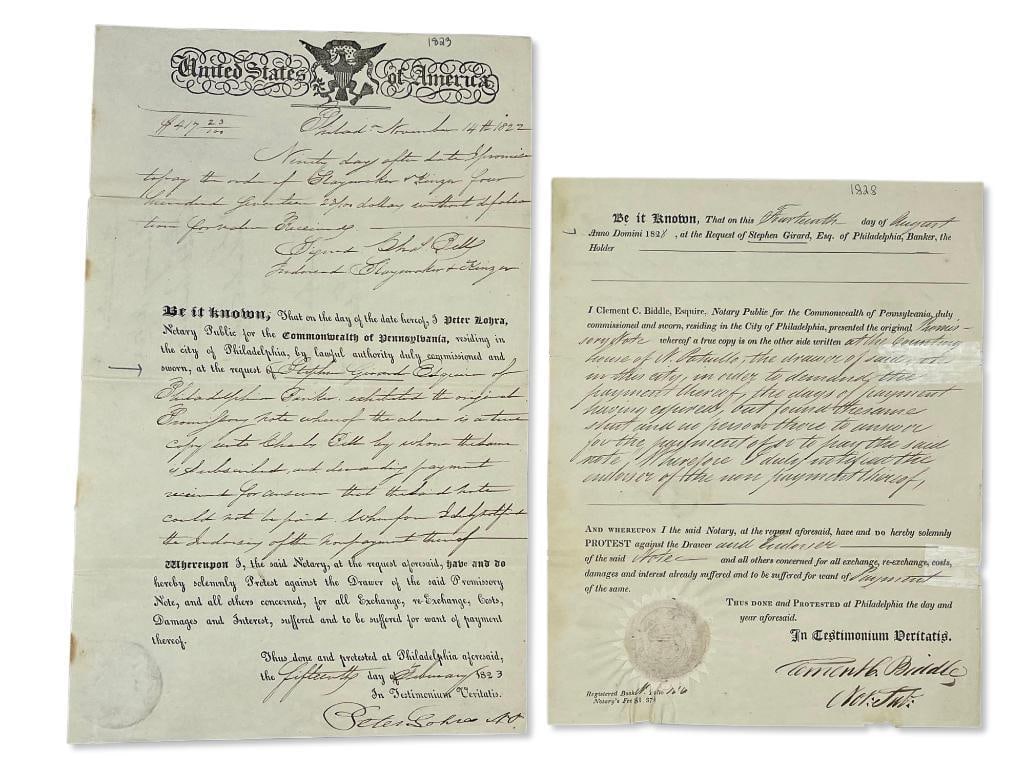 1823
United States of America
$417 23/100
Philada November 14th 1822
Ninety day after date I promise
to pay the order of Slaymaker & Kinzer four
hundred seventeen 23/100 dollars without defalca
tion for value Received
Signed Chas
Endorsed Slaymaker & Kinzer
Be it known, That on the day of the date hereof, I Peter Lohra,
Notary Public for the Commonwealth of Pennsylvania, residing in
the city of Philadelphia, by lawful authority duly commissioned and
sworn, at the request of Stephen Girard Esquire of
Philadelphia Banker exhibited the original
Promissory note whereof the above is a true
copy unto Charles by whom the same
is subscribed, and demanding payment
received for answer that the said note
could not be paid. Wherefore I duly notified
the Endorsers of the nonpayment thereof
Whereupon I, the said Notary, at the request aforesaid, have and do
hereby solemnly Protest against the Drawer of the said Promissory
Note, and all others concerned, for all Exchange, re-Exchange, Costs,
Damages and Interest, suffered and to be suffered for want of payment
thereof.
Thus done and protested at Philadelphia aforesaid,
the fifteenth day of February 1823
In Testimonium Veritatis.
Peter Lohra NP
1828
Be it Known, That on this Fourteenth day of August
Anno Domini 1828, at the Request of Stephen Girard, Esq. of Philadelphia, Banker, the
Holder
I Clement C. Biddle, Esquire, Notary Public for the Commonwealth of Pennsylvania, duly
commissioned and sworn, residing in the City of Philadelphia, presented the original Promis-
sory Note whereof a true copy is on the other side written at the Counting
house of N. the drawer of said note
in this city, in order to demand the
payment thereof, the days of payment
having expired, but found the same
shut and no person there to answer
for the payment of or to pay the said
note, Wherefore I duly notified the
endorser of the non payment thereof,
And whereupon I the said Notary, at the request aforesaid, have and do hereby solemnly
PROTEST against the Drawer and Endorser
of the said Note and all others concerned for all exchange, re-exchange, costs,
damages and interest already suffered and to be suffered for want of Payment
of the same.
Thus done and Protested at Philadelphia the day and
year aforesaid.
In Testimonium Veritatis.
Clement C. Biddle
Not: Pub:
Registered Book
Notary's Fee $1.37½